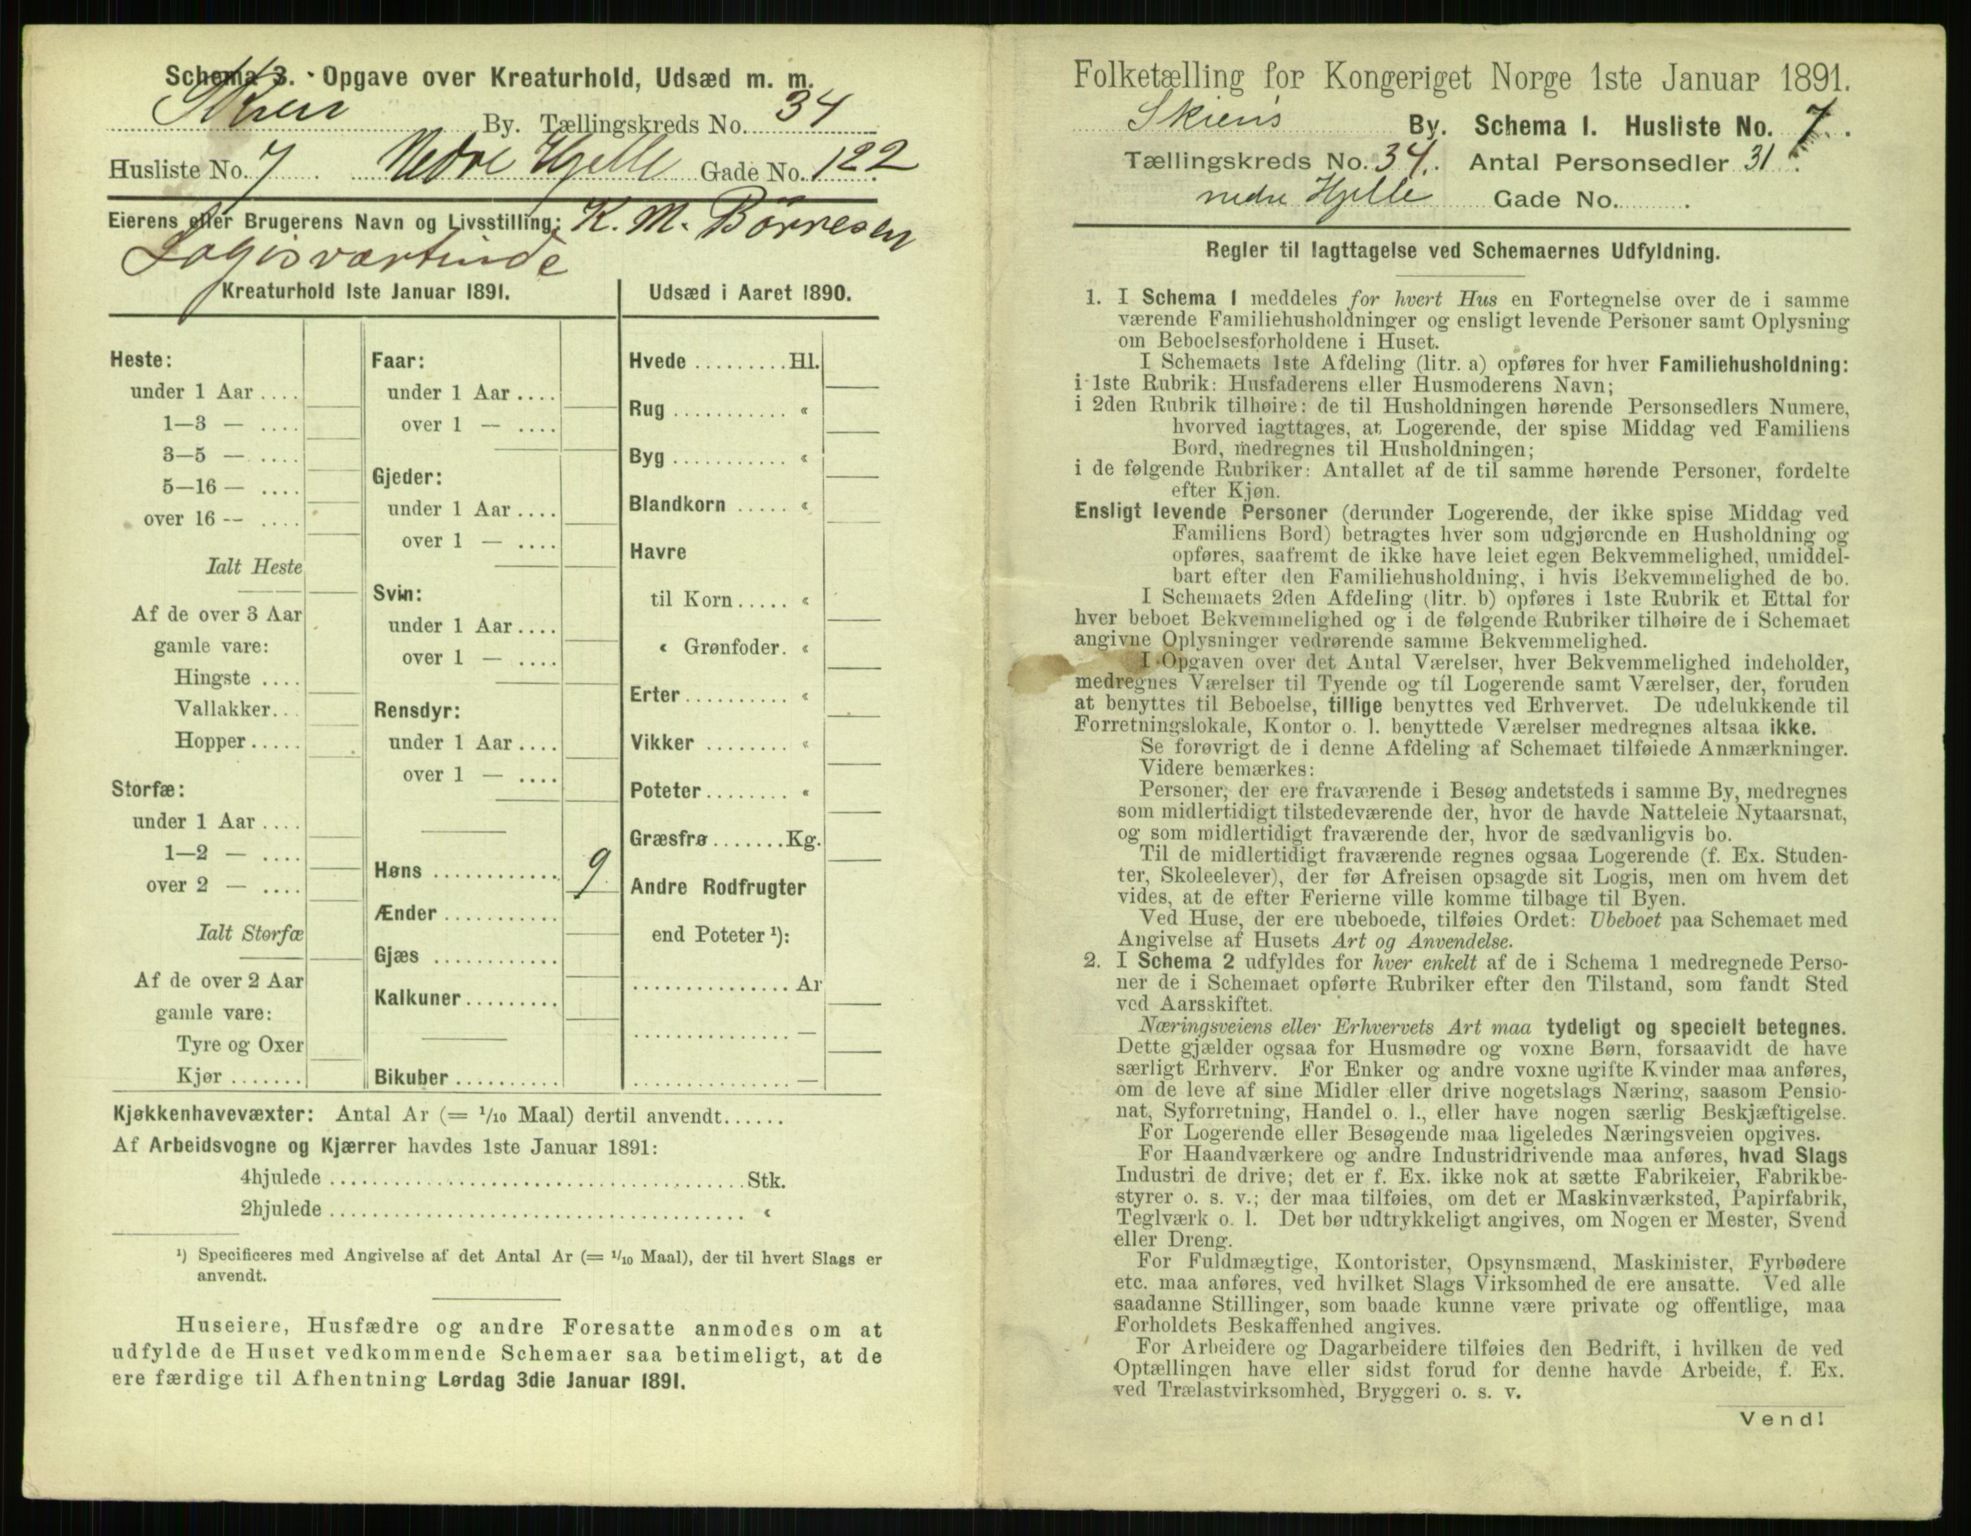 Schema 3. · Opgave over Kreaturhold, Udsæd m. m.
Skien By. Tællingskreds No. 34
Husliste No. 7 Nedre Hjelle Gade No. 122
Eierens eller Brugerens Navn og Livsstilling: K. M. Börresen
Logisværtinde
Kreaturhold 1ste Januar 1891.
Heste:
under 1 Aar....
1—3 — ....
3—5 — ....
5—16 — ....
over 16 -- ....
Ialt Heste
Af de over 3 Aar
gamle vare:
Hingste ....
Vallakker...
Hopper.....
Storfæ:
under 1 Aar....
1—2 — ....
over 2 — ....
Ialt Storfæ
Af de over 2 Aar
gamle vare:
Tyre og Oxer
Kjør.......
Faar:
under 1 Aar....
over 1 — ....
Gjeder:
under 1 Aar....
over 1 — ....
Svin:
under 1 Aar....
over 1 — ....
Rensdyr:
under 1 Aar....
over 1 — ....
Høns ............ 9
Ænder...........
Gjæs ............
Kalkuner.........
Bikuber..........
Udsæd i Aaret 1890.
Hvede .........Hl.
Rug ........... «
Byg ........... «
Blandkorn ..... «
Havre
til Korn..... «
« Grønfoder. «
Erter.......... «
Vikker ........ «
Poteter........ «
Græsfrø.......Kg.
Andre Rodfrugter
end Poteter ¹):
............... Ar
............... —
............... —
Kjøkkenhavevæxter: Antal Ar (= 1/10 Maal) dertil anvendt......
Af Arbeidsvogne og Kjærrer havdes 1ste Januar 1891:
4hjulede ........................................Stk.
2hjulede ........................................ «
¹) Specificeres med Angivelse af det Antal Ar (= 1/10 Maal), der til hvert Slags er
anvendt.
Huseiere, Husfædre og andre Foresatte anmodes om at
udfylde de Huset vedkommende Schemaer saa betimeligt, at de
ere færdige til Afhentning Lørdag 3die Januar 1891.
Folketælling for Kongeriget Norge 1ste Januar 1891.
Skiens By. Schema I. Husliste No. 7.
Tællingskreds No. 34. Antal Personsedler 31.
nedre Hjelle Gade No.
Regler til Iagttagelse ved Schemaernes Udfyldning.
1. I Schema 1 meddeles for hvert Hus en Fortegnelse over de i samme
værende Familiehusholdninger og ensligt levende Personer samt Oplysning
om Beboelsesforholdene i Huset.
I Schemaets 1ste Afdeling (litr. a) opføres for hver Familiehusholdning:
i 1ste Rubrik: Husfaderens eller Husmoderens Navn;
i 2den Rubrik tilhøire: de til Husholdningen hørende Personsedlers Numere,
hvorved iagttages, at Logerende, der spise Middag ved Familiens
Bord, medregnes til Husholdningen;
i de følgende Rubriker: Antallet af de til samme hørende Personer, fordelte
efter Kjøn.
Ensligt levende Personer (derunder Logerende, der ikke spise Middag ved
Familiens Bord) betragtes hver som udgjørende en Husholdning og
opføres, saafremt de ikke have leiet egen Bekvemmelighed, umiddel-
bart efter den Familiehusholdning, i hvis Bekvemmelighed de bo.
I Schemaets 2den Afdeling (litr. b) opføres i 1ste Rubrik et Ettal for
hver beboet Bekvemmelighed og i de følgende Rubriker tilhøire de i Schemaet
angivne Oplysninger vedrørende samme Bekvemmelighed.
I Opgaven over det Antal Værelser, hver Bekvemmelighed indeholder,
medregnes Værelser til Tyende og til Logerende samt Værelser, der, foruden
at benyttes til Beboelse, tillige benyttes ved Erhvervet. De udelukkende til
Forretningslokale, Kontor o. l. benyttede Værelser medregnes altsaa ikke.
Se forøvrigt de i denne Afdeling af Schemaet tilføiede Anmærkninger.
Videre bemærkes:
Personer, der ere fraværende i Besøg andetsteds i samme By, medregnes
som midlertidigt tilstedeværende der, hvor de havde Natteleie Nytaarsnat,
og som midlertidigt fraværende der, hvor de sædvanligvis bo.
Til de midlertidigt fraværende regnes ogsaa Logerende (f. Ex. Studen-
ter, Skoleelever), der før Afreisen opsagde sit Logis, men om hvem det
vides, at de efter Ferierne ville komme tilbage til Byen.
Ved Huse, der ere ubeboede, tilføies Ordet: Ubeboet paa Schemaet med
Angivelse af Husets Art og Anvendelse.
2. I Schema 2 udfyldes for hver enkelt af de i Schema 1 medregnede Perso-
ner de i Schemaet opførte Rubriker efter den Tilstand, som fandt Sted
ved Aarsskiftet.
Næringsveiens eller Erhvervets Art maa tydeligt og specielt betegnes.
Dette gjælder ogsaa for Husmødre og voxne Børn, forsaavidt de have
særligt Erhverv. For Enker og andre voxne ugifte Kvinder maa anføres,
om de leve af sine Midler eller drive nogetslags Næring, saasom Pensio-
nat, Syforretning, Handel o. l., eller have nogen særlig Beskjæftigelse.
For Logerende eller Besøgende maa ligeledes Næringsveien opgives.
For Haandværkere og andre Industridrivende maa anføres, hvad Slags
Industri de drive; det er f. Ex. ikke nok at sætte Fabrikeier, Fabrikbe-
styrer o. s. v.; der maa tilføies, om det er Maskinværksted, Papirfabrik,
Teglværk o. l. Det bør udtrykkeligt angives, om Nogen er Mester, Svend
eller Dreng.
For Fuldmægtige, Kontorister, Opsynsmænd, Maskinister, Fyrbødere
etc. maa anføres, ved hvilket Slags Virksomhed de ere ansatte. Ved alle
saadanne Stillinger, som baade kunne være private og offentlige, maa
Forholdets Beskaffenhed angives.
For Arbeidere og Dagarbeidere tilføies den Bedrift, i hvilken de ved
Optællingen have eller sidst forud for denne havde Arbeide, f. Ex.
ved Trælastvirksomhed, Bryggeri o. s. v.
Vend!